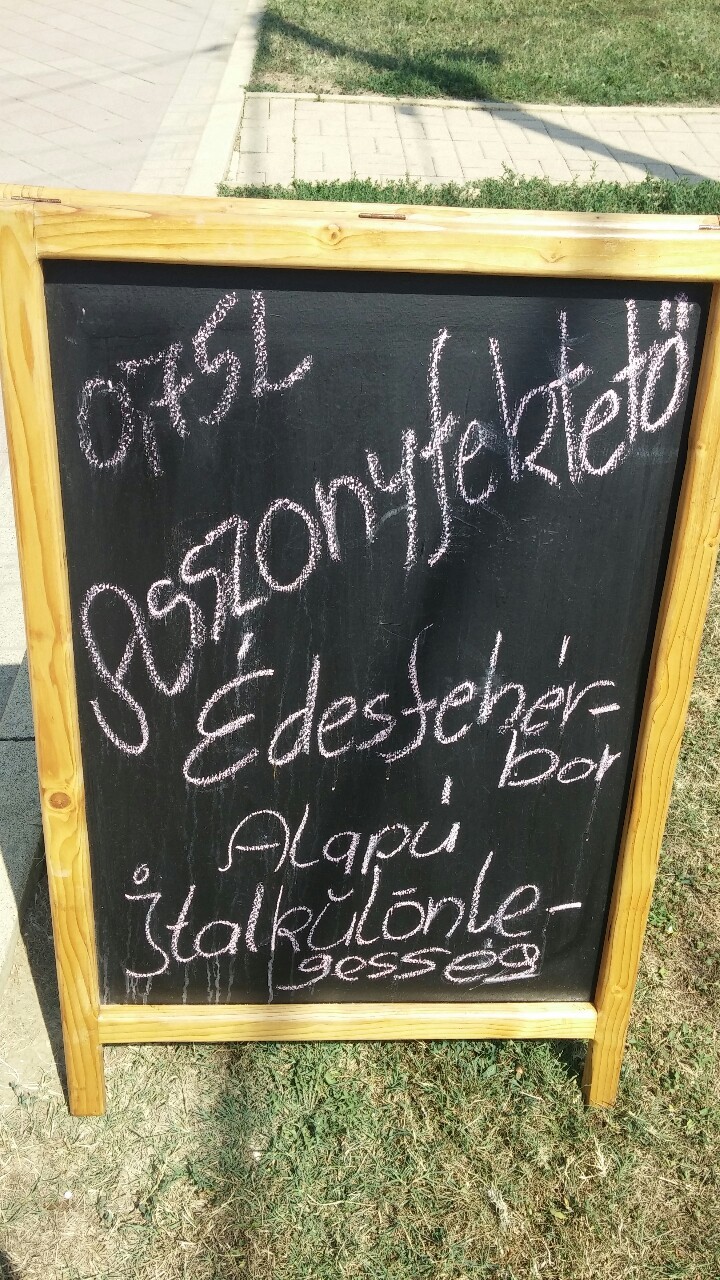 0,75L
Asszonyfektető
Édesfehér-
bor
Alapú
Italkülönle-
gesség